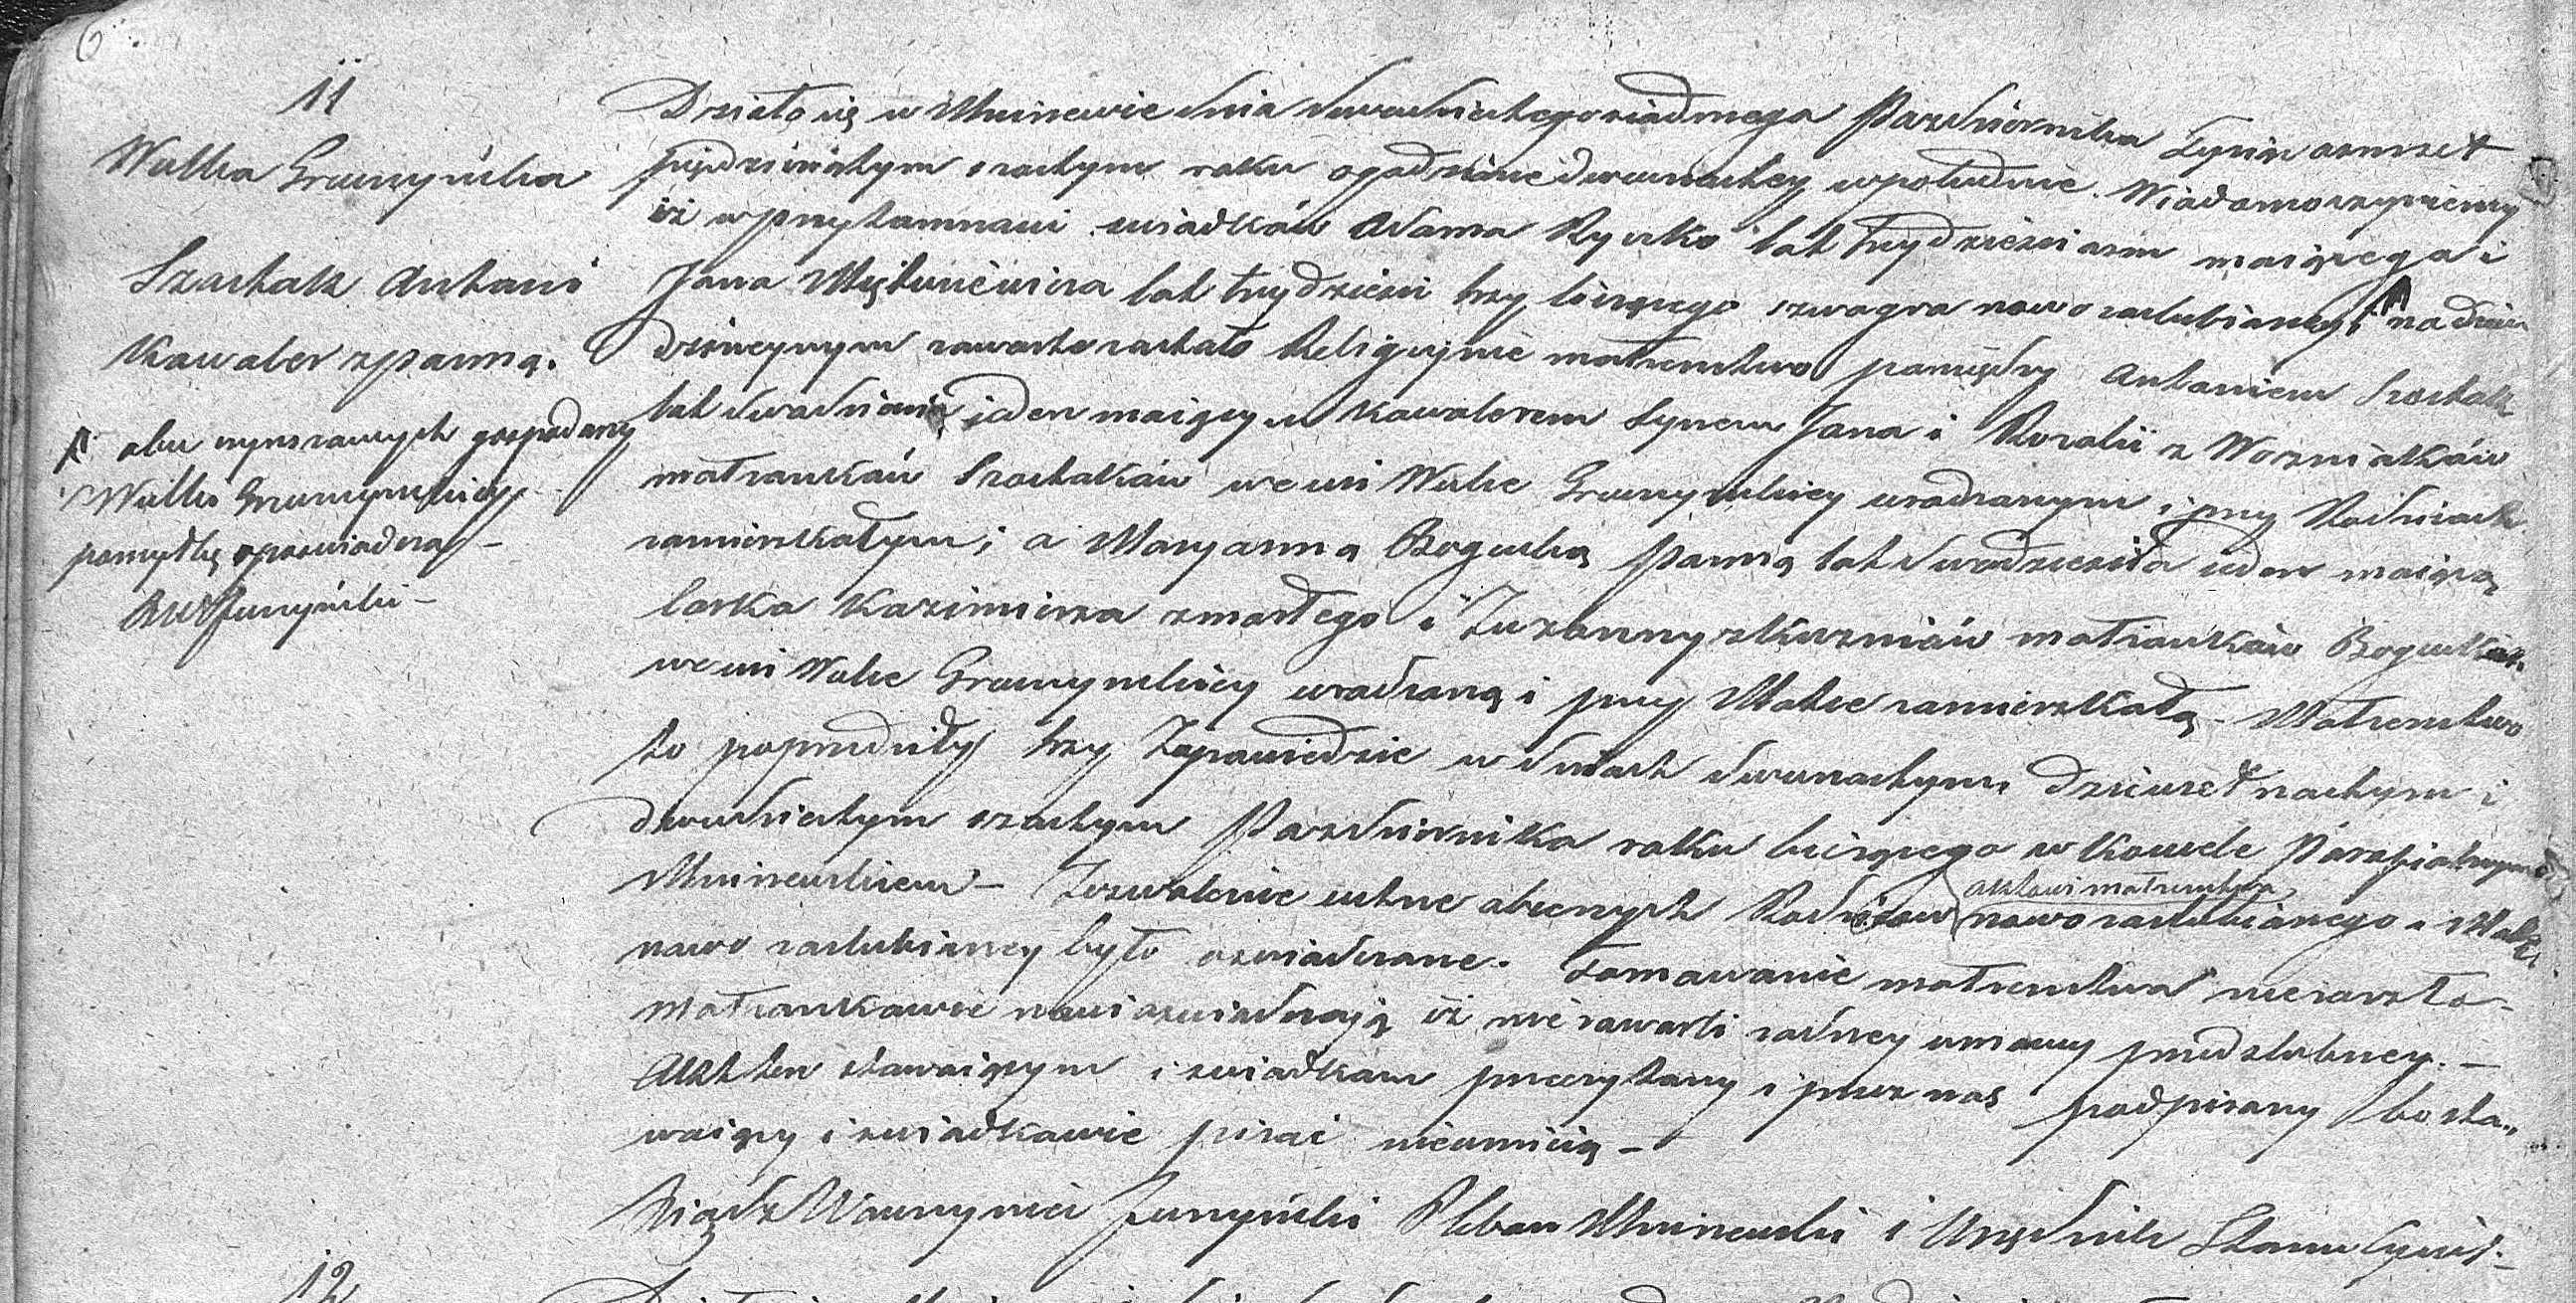 6
11
Wulka Grzmyńska
Szostak Antoni
Kawaler z panną.
obu wyrobnych gospodarzy
Wulki Grzmyńskiey
pomyłkę poświadcza
Działo się w Mninewie dnia dwudziestego siodmego Pazdziernika Tysiąc osmset
pięćdziesiątym szostym roku o godzinie dwunastey w południe. Wiadomo czyniemy
iż w przytomności swiadków Adama Rycko lat trzydzieści osm maiącego i
Jana lat trzydzieści trzy liczącego szwagra nowo zaslubioney, na dniu
dzisieyszym zawarte zostało Religijnie małżenstwo pomiędzy Antoniem Szostak
lat dwadzieścia jeden maiącym Kawalerem Synem Jana i Rozalii z Wozniaków
małżonków Szostaków we wsi Wulce urodzonym i przy Rodzicach
zamieszkałym; a Maryanną Bogucką panną lat dwadzieścia ieden maiącą
Corka Kazimirza zmarłego i Zuzanny z Kuzniów małżonków
we wsi Wulce urodzoną i przy Matce zamieszkałą - Małżenstwo
to poprzedziły trzy Zapowiedzie w dniach dwunastym, dziewiętnastym i
dwudziestym szostym Pazdziernika roku bieżącego w Kosciele Parafialnym
Mninewskiem - Zezwolenie ustne obecnych Rodziców nowo zaslubionego i Matki
aktowi małżenstwa
nowo zaslubioney było oswiadczone. Tamowanie małżenstwa nie zaszło -
Małżonkowie nowi oswiadczają iż nie zawarli żadney umowy przedslubney. -
Akt ten stawaiącym i swiadkom przeczytany i przez nas podpisany bo sta„
waiący i swiadkowie pisać nieumieią -
Xiądz Wawrzyniec Pleban Mninewski i Urzędnik Stanu Cywil: -
12